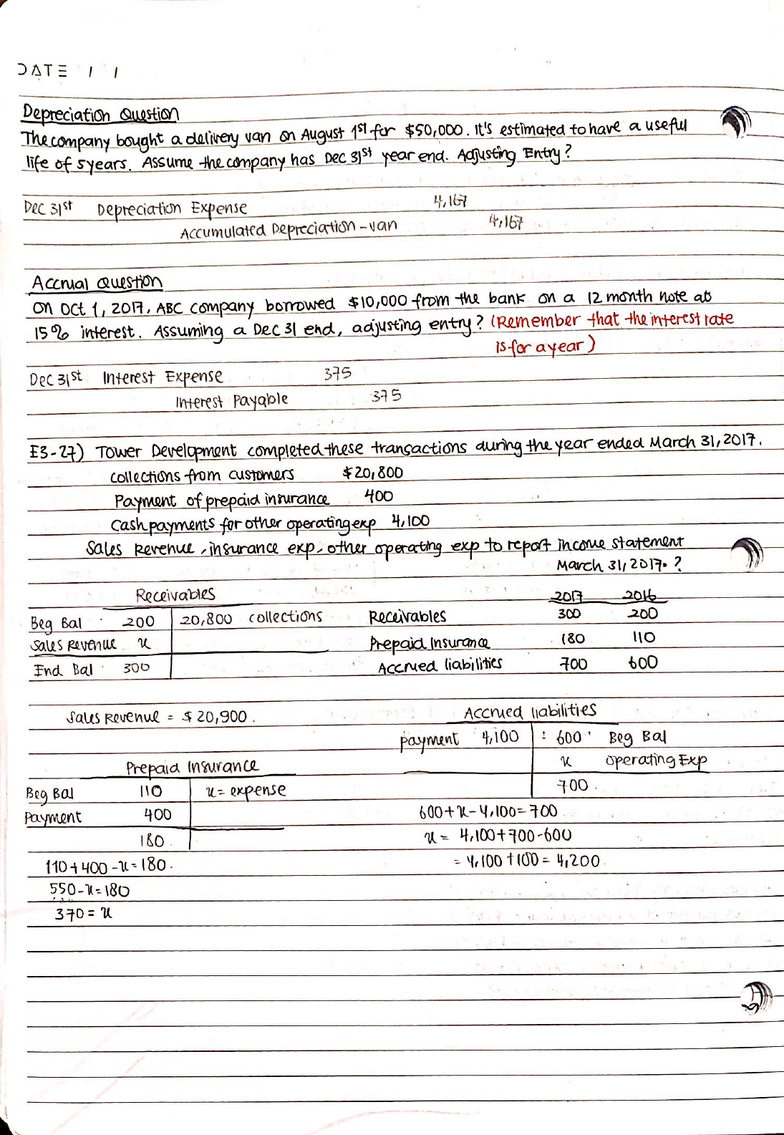 DATE / /
Depreciation Question
The company bought a delivery van on August 1st for $50,000. It's estimated to have a useful
life of 5 years. Assume the company has Dec 31st year end. Adjusting Entry?
Dec 31st Depreciation Expense 4,167
Accumulated Depreciation - van 4,167
Accrual Question
On Oct 1, 2017, ABC company borrowed $10,000 from the bank on a 12 month note at
15% interest. Assuming a Dec 31 end, adjusting entry? (Remember that the interest rate
is for a year)
Dec 31st Interest Expense 375
Interest Payable 375
E3-27) Tower Development completed these transactions during the year ended March 31, 2017.
collections from customers $20,800
Payment of prepaid insurance 400
Cash payments for other operating exp 4,100
Sales Revenue, insurance exp, other operating exp to report income statement
March 31, 2017. ?
Receivables
2017 2016
Beg Bal 200 20,800 collections Receivables 300 200
Sales Revenue x Prepaid Insurance 180 110
End Bal 300 Accrued liabilities 700 600
Sales Revenue = $20,900.
Accrued liabilities
payment 4,100 : 600 Beg Bal
x Operating Exp
700
Prepaid Insurance
Beg Bal 110 x = expense
Payment 400
180
110 + 400 - x = 180.
550 - x = 180
370 = x
600 + x - 4,100 = 700
x = 4,100 + 700 - 600
= 4,100 + 100 = 4,200